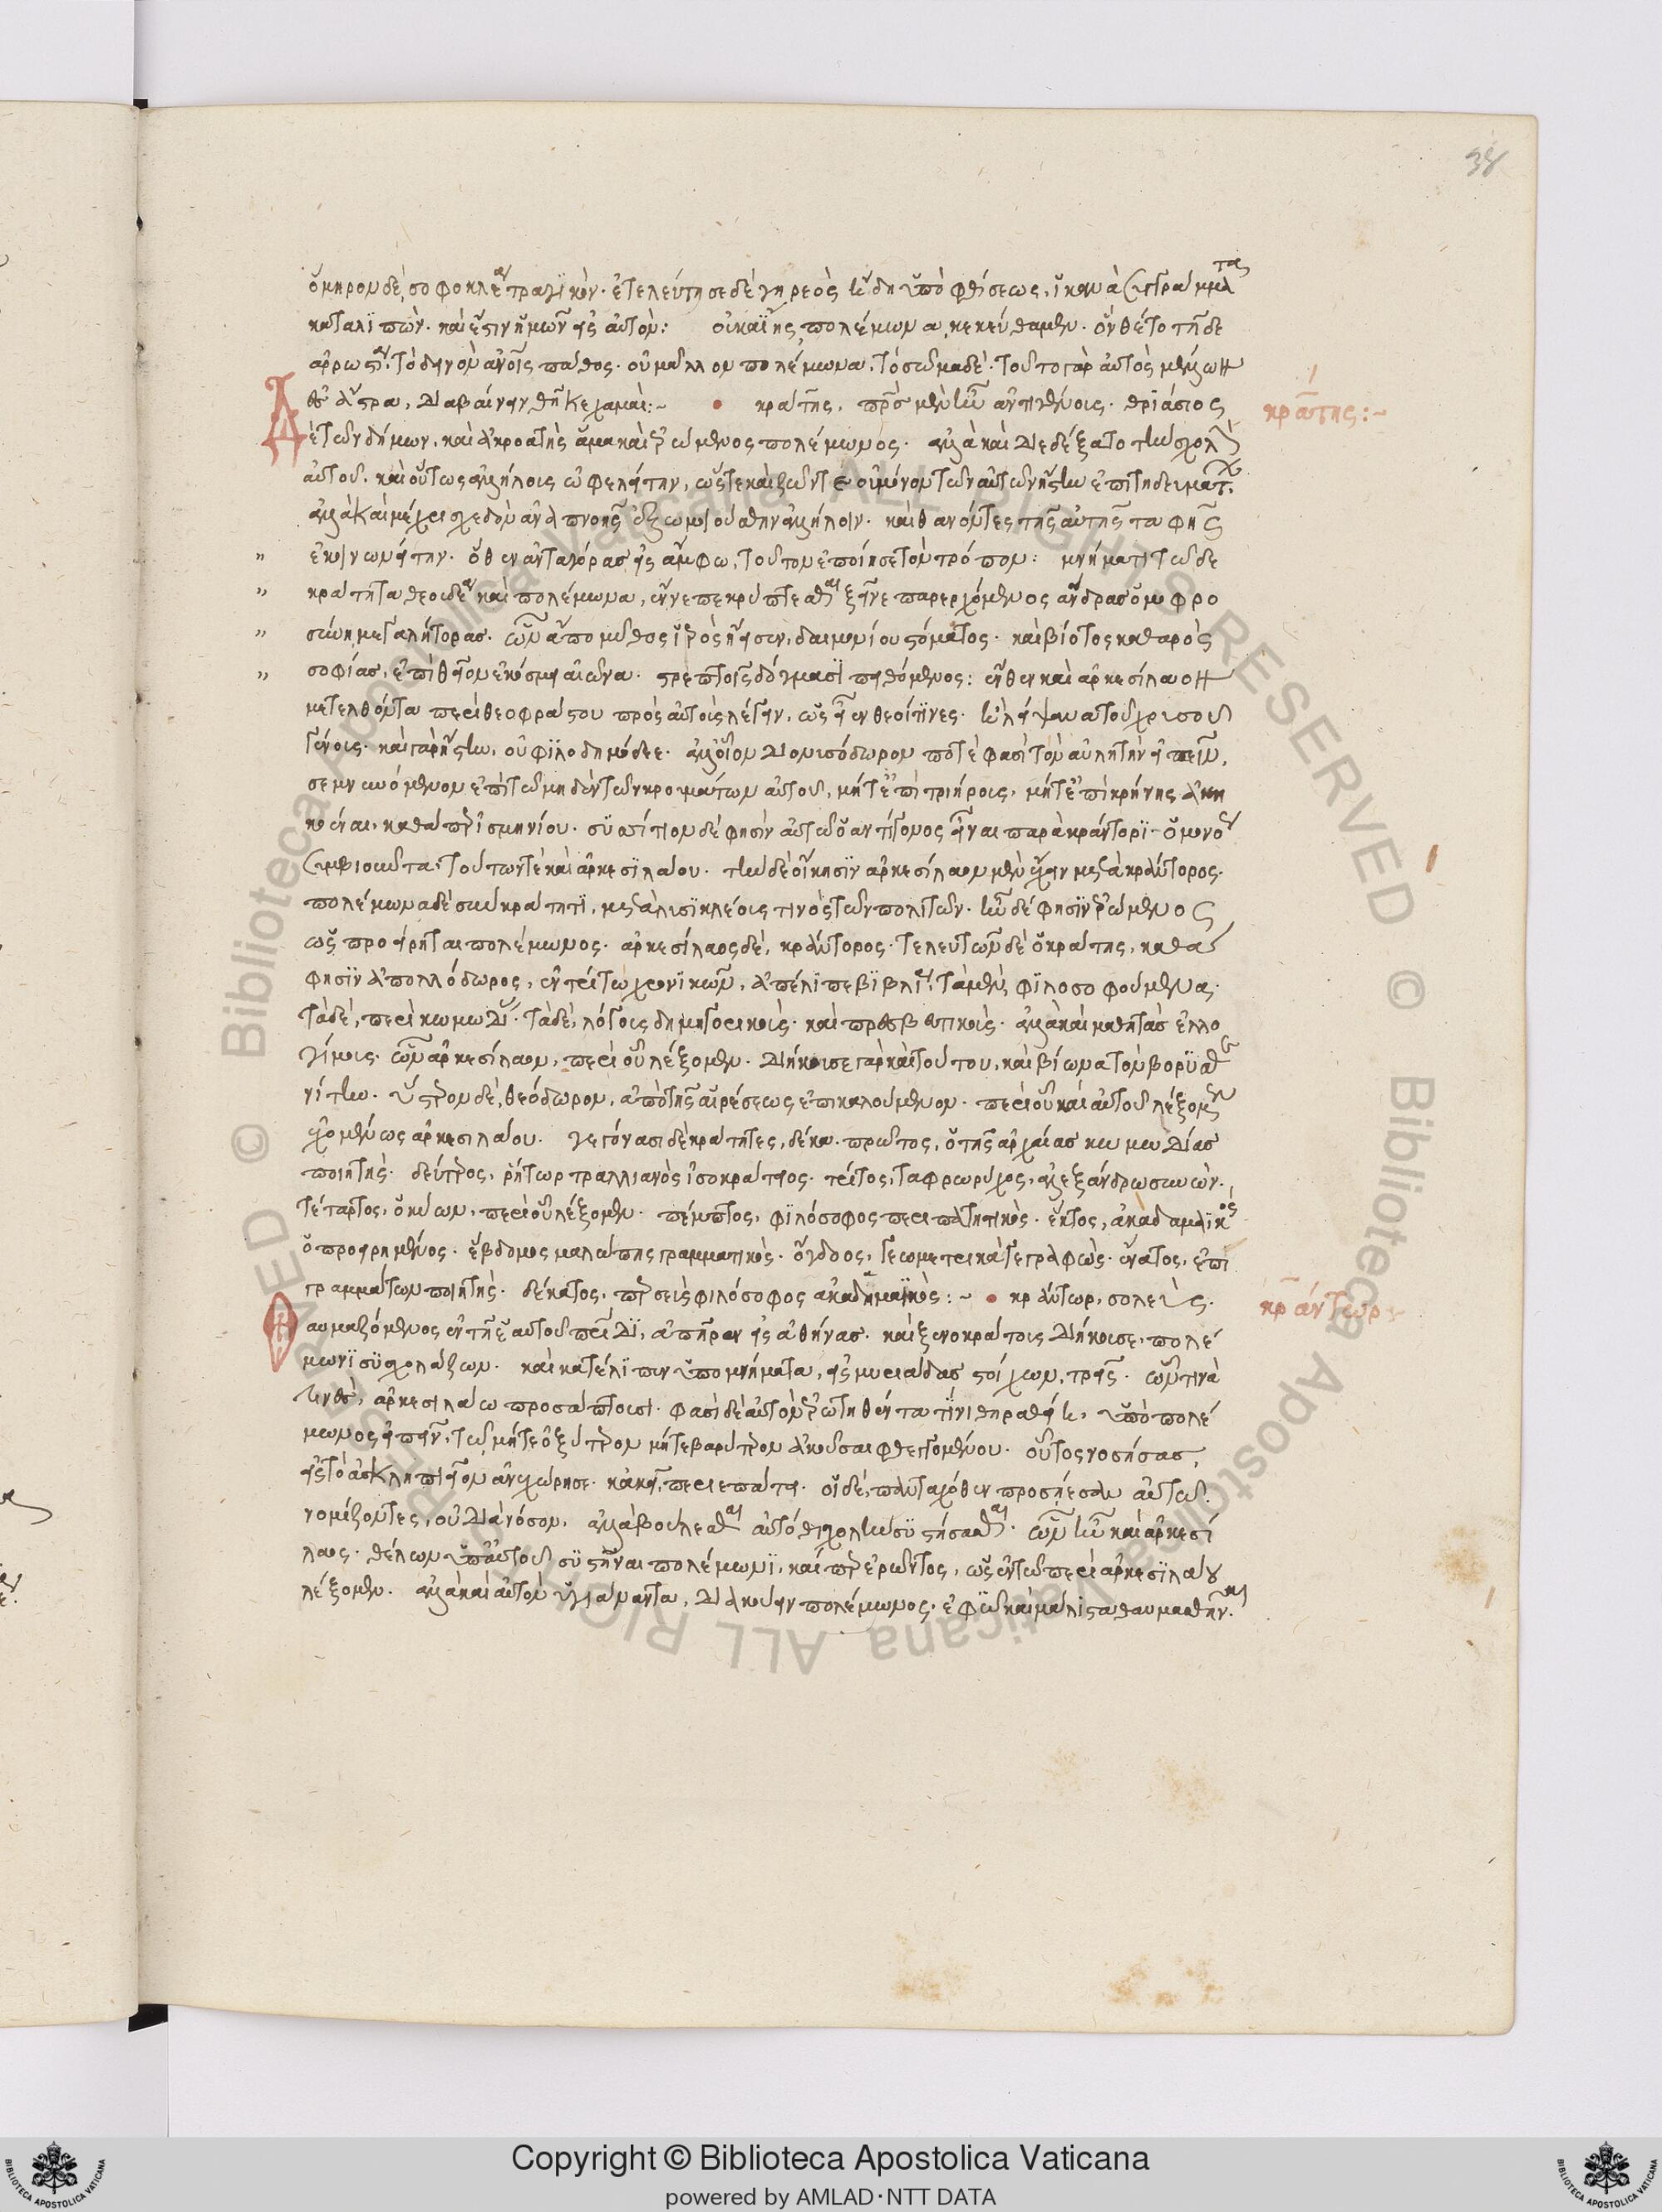 38
ὅμηρον δὲ, σοφοκλέα τραγικόν. ἐτελεύτησε δὲ γηρεὸς ἤδη ὑπὸ φθίσεως, ἱκανὰ συγγράμματα
καταλιπών. καὶ ἔστιν ἡμῶν εἰς αὐτόν: οὐκ ἀΐεις, πολέμωνα, κεκεύθαμεν. ὃν θέτο τῇδε
ἀρρωστίη, τὸ δεινὸν ἀνθρώποις πάθος. οὐ μᾶλλον πολέμωνα, τὸ σῶμα δέ. τοῦτο γὰρ αὐτὸς μέλλων
ἐς ἄστρα, διαβαίνειν θῆκε χαμαί:~ κράτης, πατρὸς μὲν ἦν ἀντιγένους. θριάσιος
κράτης:~
δὲ τῶν δήμων, καὶ ἀκροατὴς ἅμα καὶ ἐρώμενος πολέμωνος. ἀλλὰ καὶ διεδέξατο τὴν σχολὴν
αὐτοῦ. καὶ οὕτως ἀλλήλους ὠφελείτην, ὥστε καὶ ζῶντε οὐ μόνον τῶν αὐτῶν ἤστην ἐπιτηδευμάτων.
ἀλλὰ καὶ μέχρι σχεδὸν ἀναπνοῆς ἐξωμοιούσθην ἀλλήλοιν. καὶ θανόντες τῆς αὐτῆς ταφῆς
ἐκοινωνείτην. ὅθεν ἀνταγόρας εἰς ἄμφω, τοῦτον ἐποίησε τὸν τρόπον: μνήματι τῶδε
κράτητα θεουδέα καὶ πολέμωνα, ἔννεπε κρύπτεσθαι ξεῖνε παρερχόμενος ἄνδρας ὁμοφρο
σύνη μεγαλήτορας. ὧν ἄπο μῦθος ἱερὸς ἤισεν, δαιμονίου στόματος. καὶ βίοτος καθαρὸς
σοφίας, ἐπὶ θεῖον ἐκόσμει αἰῶνα. στρεπτοῖς δόγμασι πειθόμενος: ἔνθεν καὶ ἀρκεσίλαον
μετελθόντα περὶ θεοφράστου πρὸς αὐτοὺς λέγειν, ὡς εἶεν θεοί τινες. ἢ λείψανα τοῦ χρυσοῦ
γένους. καὶ γὰρ ἤστην, οὐ φιλοδημώδεε. ἀλλ' οἷον διονυσόδωρόν ποτέ φασι τὸν αὐλητὴν εἰπεῖν,
σεμνυνόμενον ἐπὶ τῶ μηδένα τῶν κρουμάτων αὐτοῦ, μήτ' ἐπὶ τριήρους, μήτ' ἐπὶ κρήνης ἀκη
κοέναι, καθάπερ ἰσμηνίου. συσσίτιον δέ φησιν αὐτῶ ὁ ἀντίγονος εἶναι παρὰ κράντορι. ὁμονόως
συμβιούντων τούτων τε καὶ ἀρκεσιλάου. τὴν δὲ οἴκησιν ἀρκεσίλαον μὲν ἔχειν μετὰ κράντορος.
πολέμωνα δὲ σὺν κράτητι, μετὰ λυσικλέους τινὸς τῶν πολιτῶν. ἦν δέ φησιν ἐρώμενος
ὡς προείρηται πολέμωνος. ἀρκεσίλαος δὲ, κράντορος. τελευτῶν δὲ ὁ κράτης, καθά
φησιν ἀπολλόδωρος, ἐν τρίτω χρονικῶν, ἀπέλιπε βιβλία, τὰ μὲν, φιλοσοφούμενα.
τὰ δὲ, περὶ κωμωδίας. τὰ δὲ, λόγους δημηγορικούς. καὶ πρεσβευτικούς. ἀλλὰ καὶ μαθητὰς ἐλλο
γίμους. ὧν ἀρκεσίλαον, περὶ οὗ λέξομεν. διήκουσε γὰρ καὶ τούτου, καὶ βίωνα τὸν βορυσθε
νίτην. ὕστερον δὲ, θεόδωρον, ἀπὸ τῆς αἱρέσεως ἐπικαλούμενον. περὶ οὗ καὶ αὐτοῦ λέξομεν
ἐχομένως ἀρκεσιλάου. γεγόνασι δὲ κράτητες, δέκα. πρῶτος, ὁ τῆς ἀρχαίας κωμωδίας
ποιητής. δεύτερος, ῥήτωρ τραλλιανὸς ἰσοκράτειος. τρίτος, ταφρωρύχος, ἀλεξάνδρω συνών.
τέταρτος, ὁ κύων, περὶ οὗ λέξομεν. πέμπτος, φιλόσοφος περιπατητικός. ἕκτος, ἀκαδαμαϊκὸς
ὁ προειρημένος. ἕβδομος μαλώτης γραμματικός. ὄγδοος, γεωμετρικὰ γεγραφώς. ἔνατος, ἐπι
γραμμάτων ποιητής. δέκατος, ταρσεὺς φιλόσοφος ἀκαδημαϊκός:~ κράντωρ, σολεὺς.
κράντωρ
θαυμαζόμενος ἐν τῇ ἑαυτοῦ πατρίδι, ἀπῆρεν εἰς ἀθήνας. καὶ ξενοκράτους διήκουσε, πολέ
μωνι συσχολάζων. καὶ κατέλιπεν ὑπομνήματα, εἰς μυριάδας στίχων, τρεῖς. ὧν τινὰ
τινὲς, ἀρκεσιλάω προσάπτουσι. φασὶ δὲ αὐτὸν ἐρωτηθέντα τίνι θηραθείη, ὑπὸ πολέ
μωνος εἰπεῖν, τῶ μήτε ὀξύτερον μήτε βαρύτερον ἀκοῦσαι φθεγγομένου. οὗτος νοσήσας,
εἰς τὸ ἀσκληπιεῖον ἀνεχώρησε. κἀκεῖ, περιεπάτει. οἱ δὲ, πανταχόθεν προσήιεσαν αὐτῶ.
νομίζοντες, οὐ διὰ νόσον, ἀλλὰ βούλεσθαι αὐτόθι σχολὴν συστήσασθαι. ὧν ἦν καὶ ἀρκεσί
λαος. θέλων ὑπ' αὐτοῦ συστῆναι πολέμωνι, καίπερ ἐρῶντος, ὡς ἐν τῶ περὶ ἀρκεσιλάου
λέξομεν. ἀλλὰ καὶ αὐτὸν ὑγιάναντα, διακούειν πολέμωνος. ἐφ' ὧ καὶ μάλιστα θαυμασθῆναι.